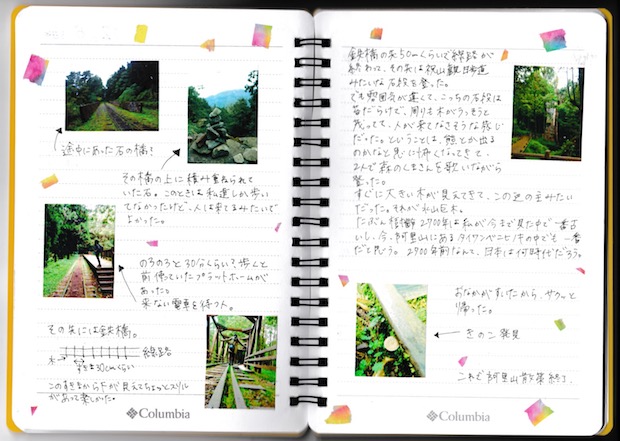 途中にあった石の橋。
その橋の上に積み重ねられて
いた石。このときは私達しか歩い
てなかったけど、人は来てるみたいで
よかった。
のろのろと30分くらい?歩くと
前使っていたプラットホームが
あった。
来ない電車を待つ人。
その先には鉄橋。
線路
木
約30cmくらい
このすきまから下が見えてちょっとスリル
があって楽しかった。
Columbia
鉄橋の先50mくらいで線路が
終わって、その先は祝山観日歩道
みたいな石段を登った。
でも雰囲気が違くて、こっちの石段は
苔だらけで、周りも木がうっそうと
茂ってて、人が来てなさそうな感じ
だった。ということは、熊とか出る
のかなと急に怖くなってきて、
2人で森のくまさんを歌いながら
登った。
すぐに大きい木が見えてきて、この辺の主みたい
だった。それが水山巨木。
たぶん樹齢2900年は私が今まで見た中で一番古
いし、今、阿里山にあるタイワンベニヒノキの中でも一番
だと思う。2900年前なんて、日本は何時代だろう。
おなかがすいたから、サクーっと
帰った。
きのこ発見
これで阿里山散策終了。
Columbia